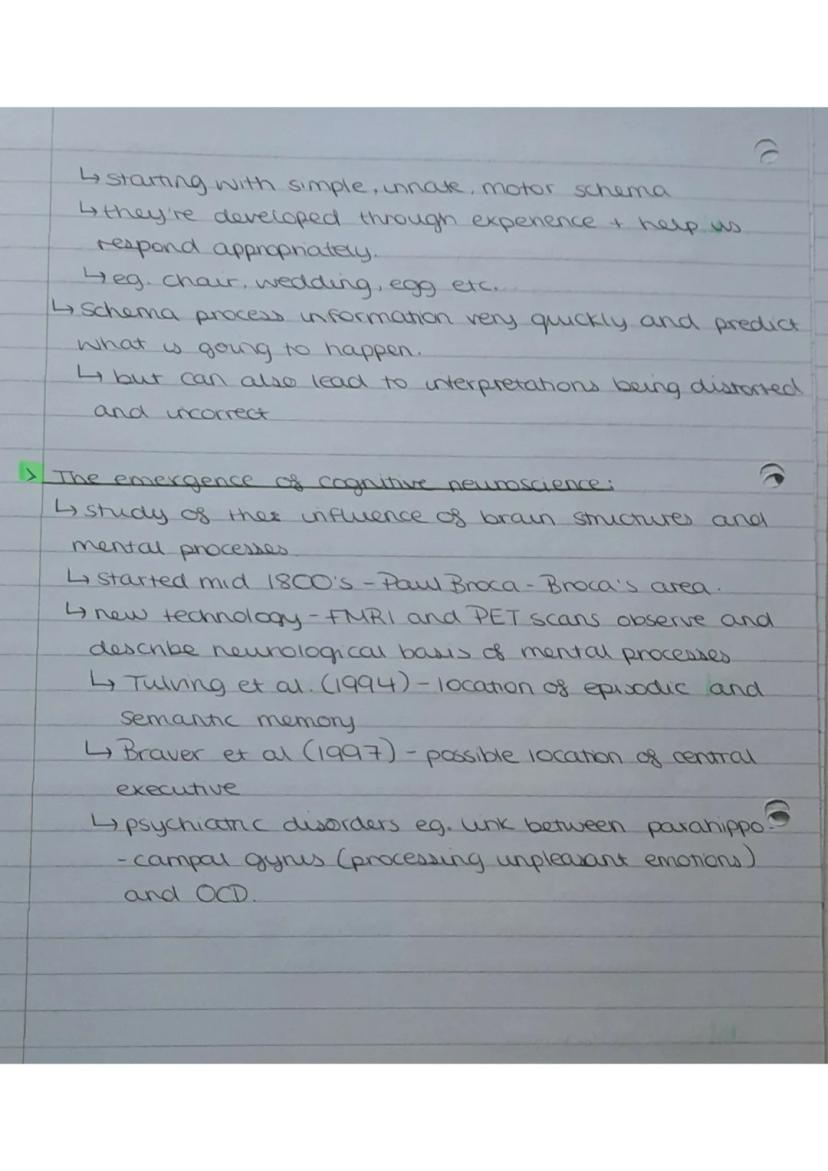 ↳ starting with simple, innate, motor schema
↳ they're developed through experience + help us
respond appropriately.
↳ eg. chair, wedding, egg etc.
↳ Schema process information very quickly and predict
what is going to happen.
↳ but can also lead to interpretations being distorted
and incorrect
> The emergence of cognitive neuroscience:
↳ study of the influence of brain structures and
mental processes
↳ started mid 1800's - Paul Broca - Broca's area.
↳ new technology - fMRI and PET scans observe and
describe neurological basis of mental processes
↳ Tulving et al. (1994) - location of episodic and
semantic memory
↳ Braver et al (1997) - possible location of central
executive
↳ psychiatric disorders eg. link between parahippo-
-campal gyrus (processing unpleasant emotions)
and OCD.